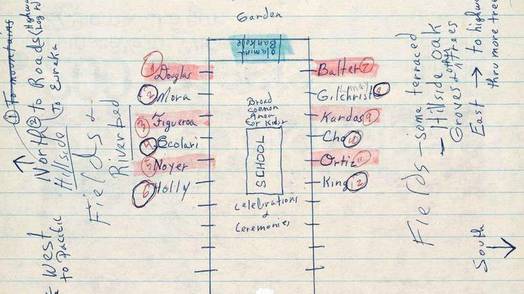 Garden
Olamina
Bankole
1 Douglas
2 Mora
3 Figueroa
4 Scolari
5 Noyer
6 Holly
Broad
common
SCHOOL
Celebrations
&
Ceremonies
Balter 7
Gilchrist 8
Kardos 9
Cho 10
Ortiz 11
King 12
① To mountains
North ② To Roads
Hillside To Eureka
Fields +
River bed
West
to Pacific
Fields - some terraced
- Hillside oak
Groves
East → to highway
thru more trees
South